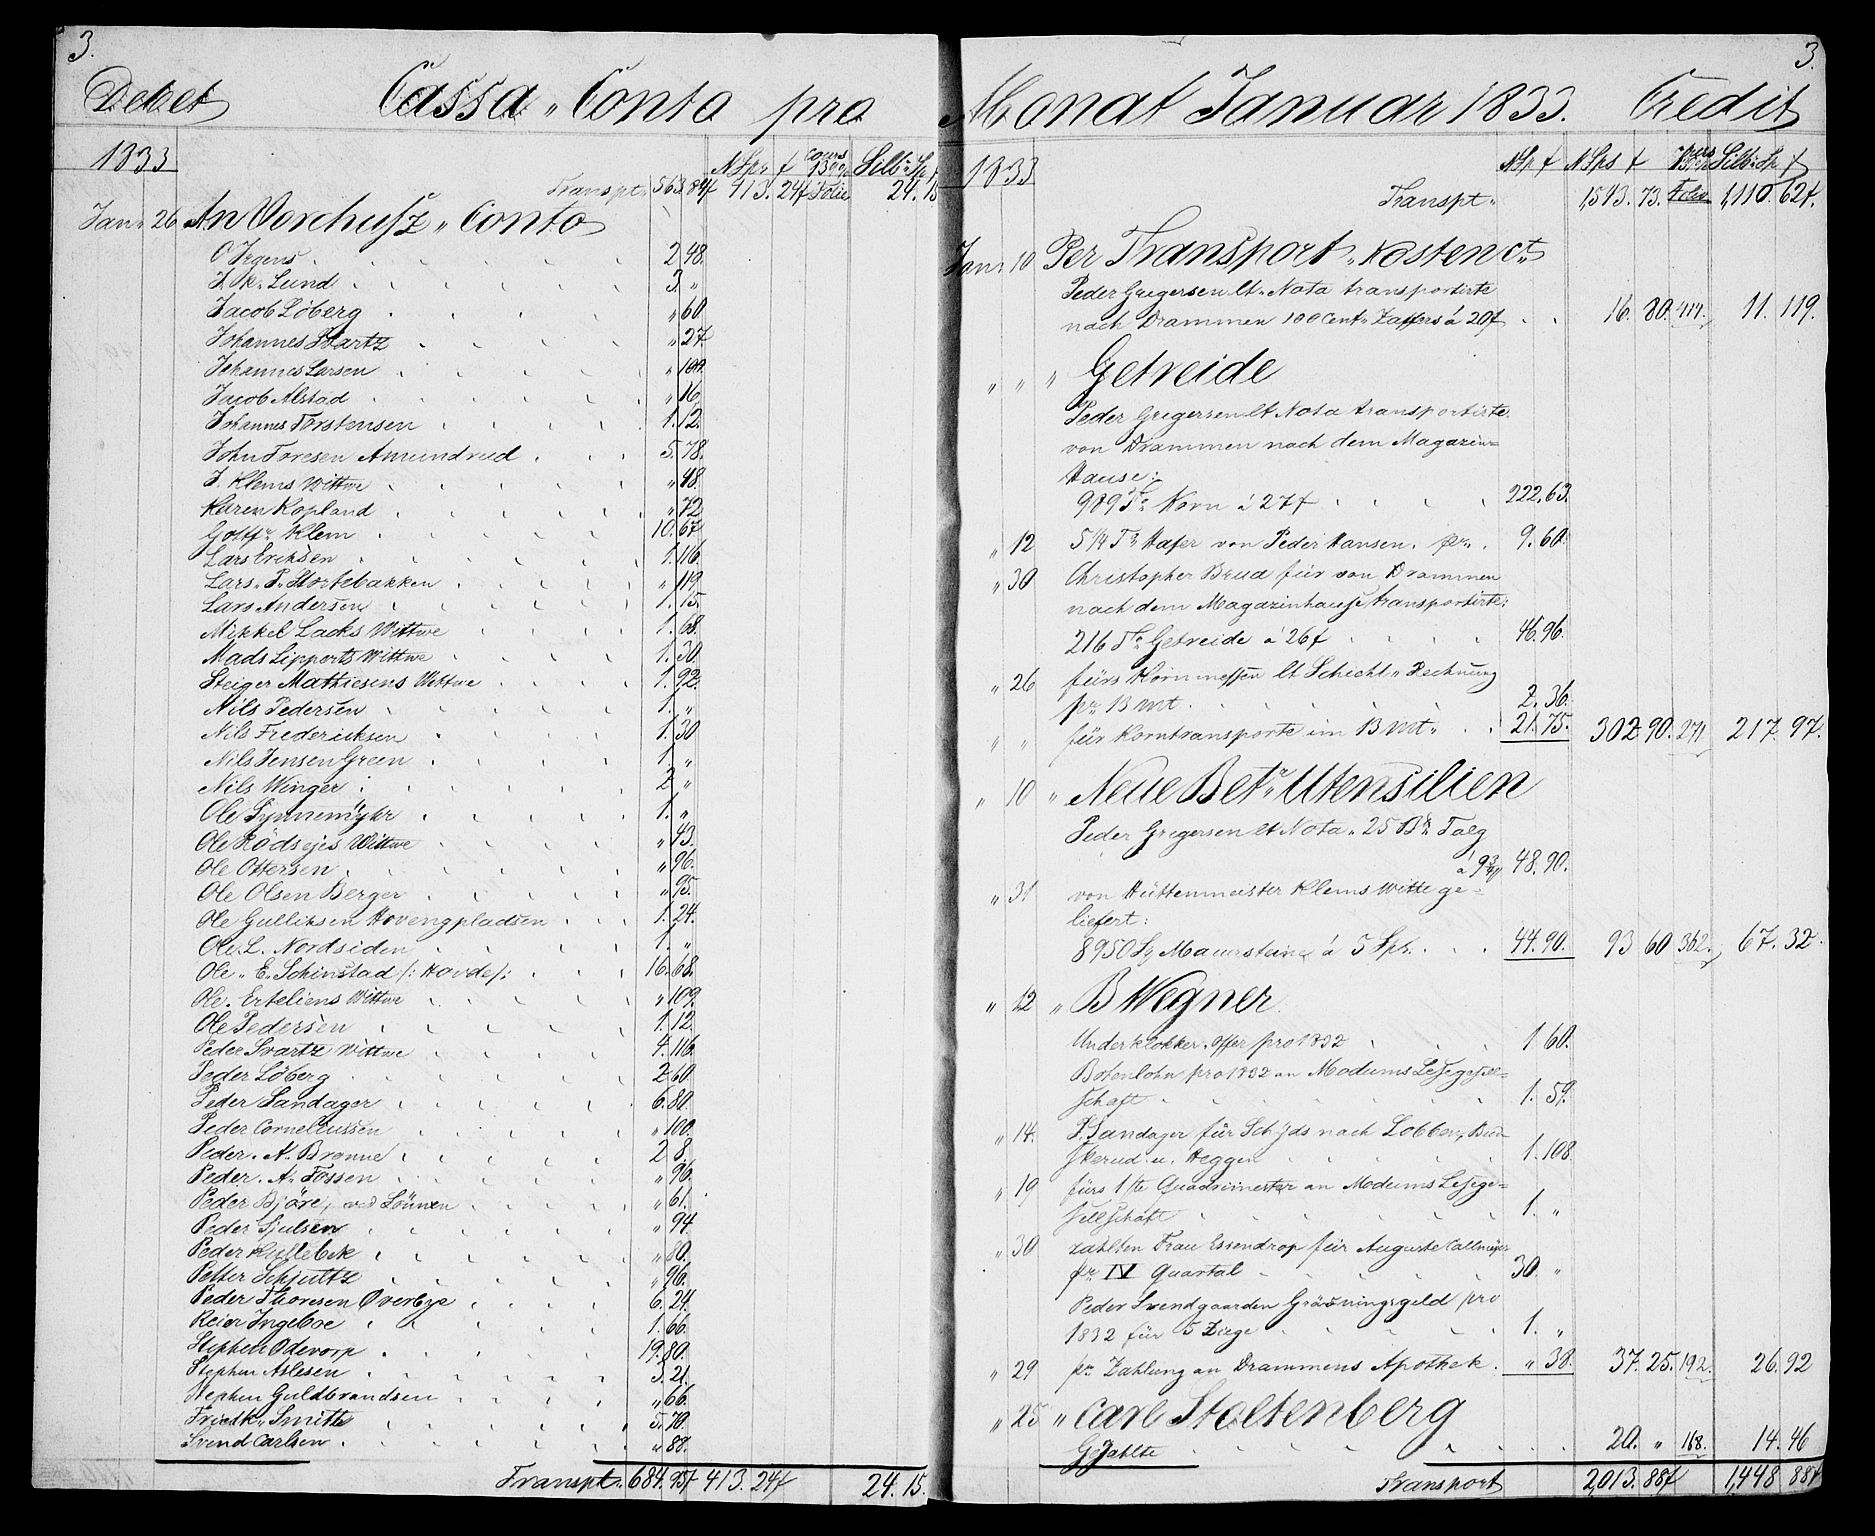 3.
Debet Cassa-Conto pro
1833 NSp f Cours 139 Silb: Sp f
Transpt. 563 84f 413. 24f Folie 24. 15
Jan 26 An Vorchusz Conto
O Irgens 2 48.
Lund 3 "
Jacob Löberg " 60
Johannes " 27
Johannes Larsen "
Jacob Alstad " 16
Johannes Torstensen 1. 12.
John Toresen Amundrud 5. 78.
J. Klems Wittwe " 48.
Karen Kopland " 72
Gottfr Klem 10. 67
Lars Eriksen 1. 116.
Lars P. Stortebakken " 119
Lars Andersen 1. 15.
Mikkel Lacks Wittwe 1. 68.
Mads Lipperts Wittwe 1. 30.
Steiger Mathiesens Wittwe 1. 92.
Nils Pedersen 1. "
Nils Fredericksen 1. 30
Nils Jensen Green 1. "
Nils Winger 2 "
Ole 1. "
Ole Rödsejes Wittwe " 43.
Ole Ottersen " 96.
Ole Olsen Berger " 95.
Ole Gulliksen Hovengpladsen 1. 24.
Ole L. Nordsiden 1. "
Ole E. Schinstad /: Hovde /: 16. 68.
Ole Erteliens Wittwe " 109.
Ole Pedersen 1. 12.
Peder Svartz Wittwe 4. 116.
Peder Löberg 2 60.
Peder Sandager 6. 80.
Peder Corneliussen " 100.
Peder A. Bronne 2 8.
Peder A. Fossen " 96.
Peder Björe, " 61.
Peder Sjulsen " 94
Peder Kullebek " 60.
Petter Schjultz " 96.
Peder Thoresen Överbye 6. 24.
Reier Ingeboe 1. 66.
Stephen Odevorp 19. 80.
Stephen Aslesen 3. 21.
Stephen Guldbrandsen " 66.
Friedk. Smitts 5. 70.
Svend Carlsen " 88.
Transpt. 684. 95f 413. 24f 24. 15.
3.
Monat Januar 1833. Credit
1833 NSp f NSps f Silb: Sp f
Transpt. 1,543. 73. Folio 1,110. 62f.
Jan 10 Per Transport Kosten Ct.
Peder Gregersen lt. Nota transportirte
nach Drammen 100 Cent. Zaffers à 20f 16. 80. 11. 119.
" " " Getreide
Peder Gregersen lt Nota transportirte
von Drammen nach dem Magazin=
Hause:
989 Tr Korn à 27f 222, 63.
" 12 5 1/4 Tr Hafer von Peder Hansen. pr. 9. 60.
" 30 Christopher Brua für von Drammen
nach dem Magazinhause transportirte:
216 Tr Getreide à 26f 46. 96.
" 26 fürs Kornmessen lt Schicht Rechnung
pr. B Mt. 2. 36.
" " für Korntransporte im B Mt. 21. 75. 302. 90. 271 217. 97.
" 10 " Neue Betr Utensilien
Peder Gregersen lt Nota 25 Talg
48. 90.
" 31 von Hüttenmeister Klems Witte ge=
liefert:
8950 Mauersteine à 5 Sps. 44. 90. 93 60 362. 67. 32.
" 12 " B Wegner
Underklokker offer pro 1832 1 60.
Botenlohn pro 1832 an Modums Lesegesell=
schaft 1. 59.
" 14. P. Sandager für Schyds nach Lobben, Bus=
kerud u. Heggen 1. 108.
" 19 fürs 1ste an Modums Lesege=
sellschaft 1. "
" 30 zahlten Frau Essendrop für Auguste Callmeyer
pr. IV Quartal 30. "
Peder Svendgaarden Gräsningsgeld pro
1832 für 5 Ziege 1. "
" 29 pr. Zahlung an Drammens Apothek. " 38. 37. 25. 192. 26. 92
" 25 " Carl Stoltenberg
Gezahlte 20. " 168. 14. 46
Transport 2,013. 88f 1,448 88f